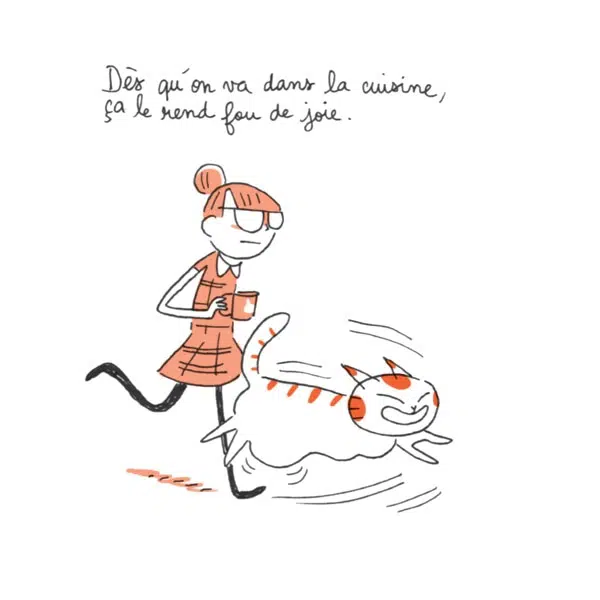 Dès qu'on va dans la cuisine,
ça le rend fou de joie.